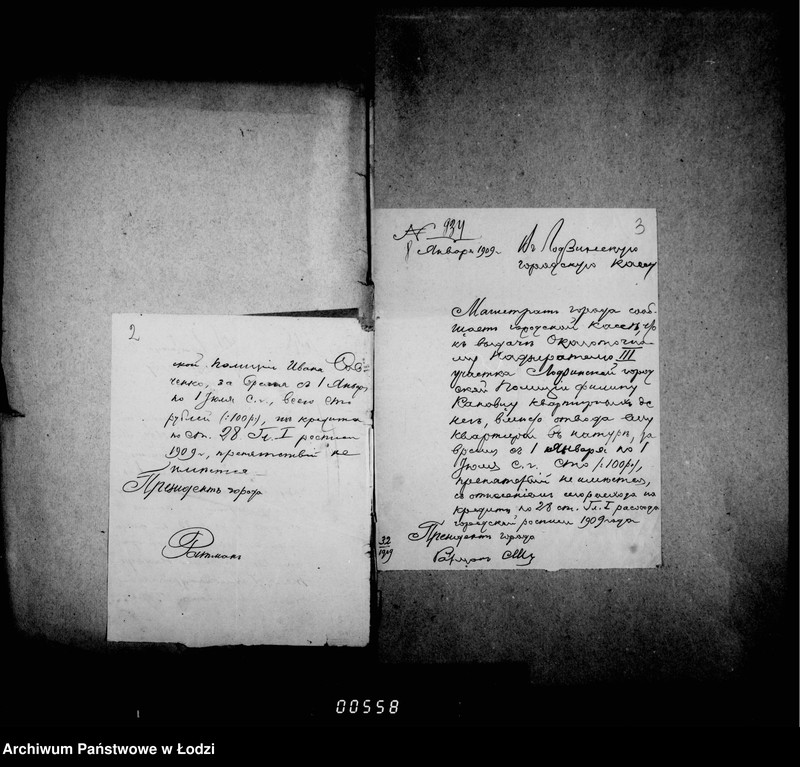 2
ской полиціи Ивана
ченко, за время съ 1 Января
по 1 Іюля с.г., всего сто
рублей (:100р:), изъ кредита
по ст. 28 Гл. I росписи
1909 г., препятствій не
имѣется
Президентъ города
Ратманъ
3
№ 934
8 Января 1909 г.
Въ Лодзинскую
городскую кассу
Магистратъ города сооб-
щаетъ городской кассѣ, что
къ выдачѣ Околоточно-
му Надзирателю III
участка Лодзинской город
ской Полиціи Филипу
квартирныхъ де
негъ, взамѣнъ отвода ему
квартиры въ натурѣ, за
время съ 1 Января по 1
Іюля с.г. сто (:100р:),
препятствій не имѣется,
съ отнесеніемъ сего расхода на
кредитъ по 28 ст. Гл. I расхода
городской росписи 1909 года
Президентъ города
32
1909
00558
Archiwum Państwowe w Łodzi